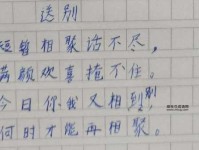 送别
短暂相聚话不尽，
满颜欢喜掩不住。
今日你我又相到别，
何时才能再相聚。